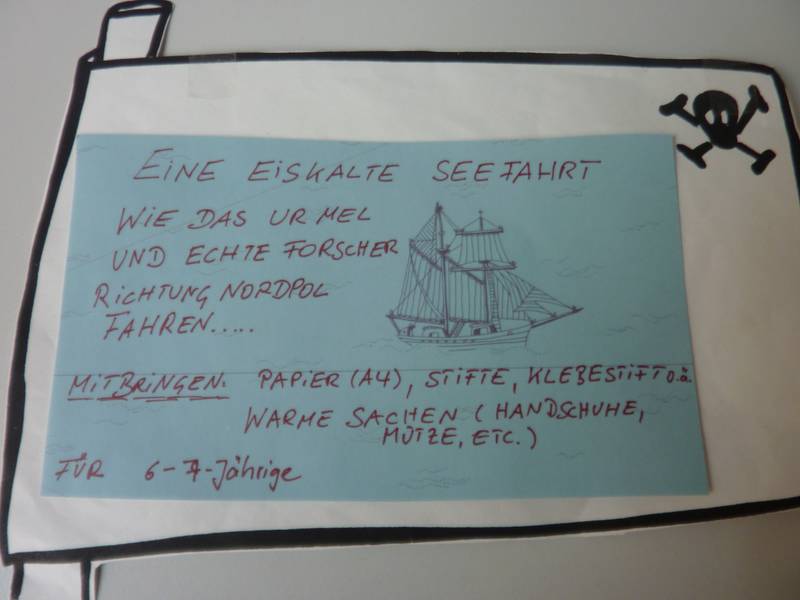 EINE EISKALTE SEEFAHRT
WIE DAS URMEL
UND ECHTE FORSCHER
RICHTUNG NORDPOL
FAHREN.....
MITBRINGEN: PAPIER (A4), STIFTE, KLEBESTIFT o.ä.
WARME SACHEN (HANDSCHUHE,
MÜTZE, ETC.)
FÜR 6-7-Jährige